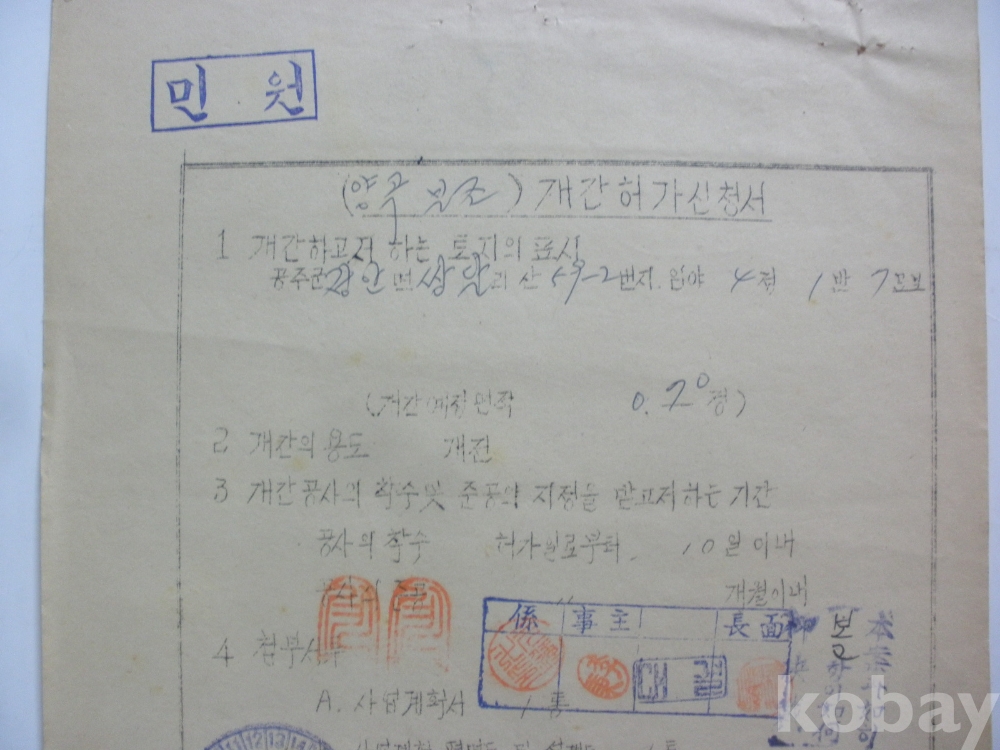 민 원
(양곡 보조) 개간허가신청서
1 개간하고저 하는 토지의 표시
공주군 장안면 상달리 산 59-2번지 임야 4정 1반 7묘보
(개간예정면적 0.70정)
2 개간의 용도 개전
3 개간공사의 착수및 준공의 지정을 받고저하는 기간
공사의 착수 허가일로부터 10일이내
공사의 준공 〃 개월이내
係 事主 長面
4 첨부서류
대결
A. 사업계획서 1통
11 12 13 14
kobay